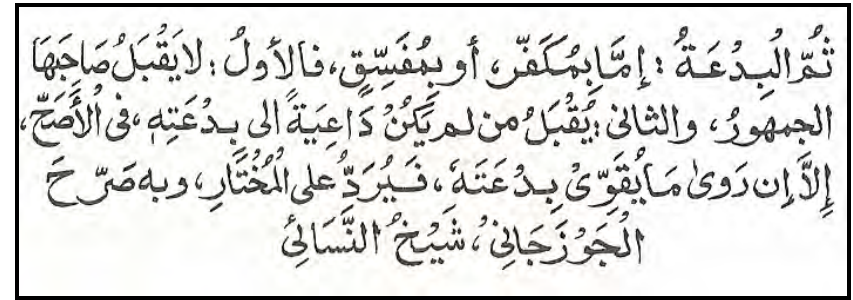 ثُمَّ الْبِدْعَةُ : إِمَّا بِمُكَفِّرٍ، أو بِمُفَسِّقٍ، فالأولُ : لا يَقْبَلُ صَاحِبَهَا
الجمهورُ، والثانى : يُقْبَلُ من لم يَكُنْ دَاعِيَةً الى بِدْعَتِهِ، فى الْأَصَحِّ،
إِلَّا إن رَوىٰ مَا يُقَوِّىْ بِدْعَتَهٗ، فَيُرَدُّ على الْمُخْتَارِ، وبه صَرَّحَ
الْجَوْزَجَانِىْ، شَيْخُ النَّسَائِىْ